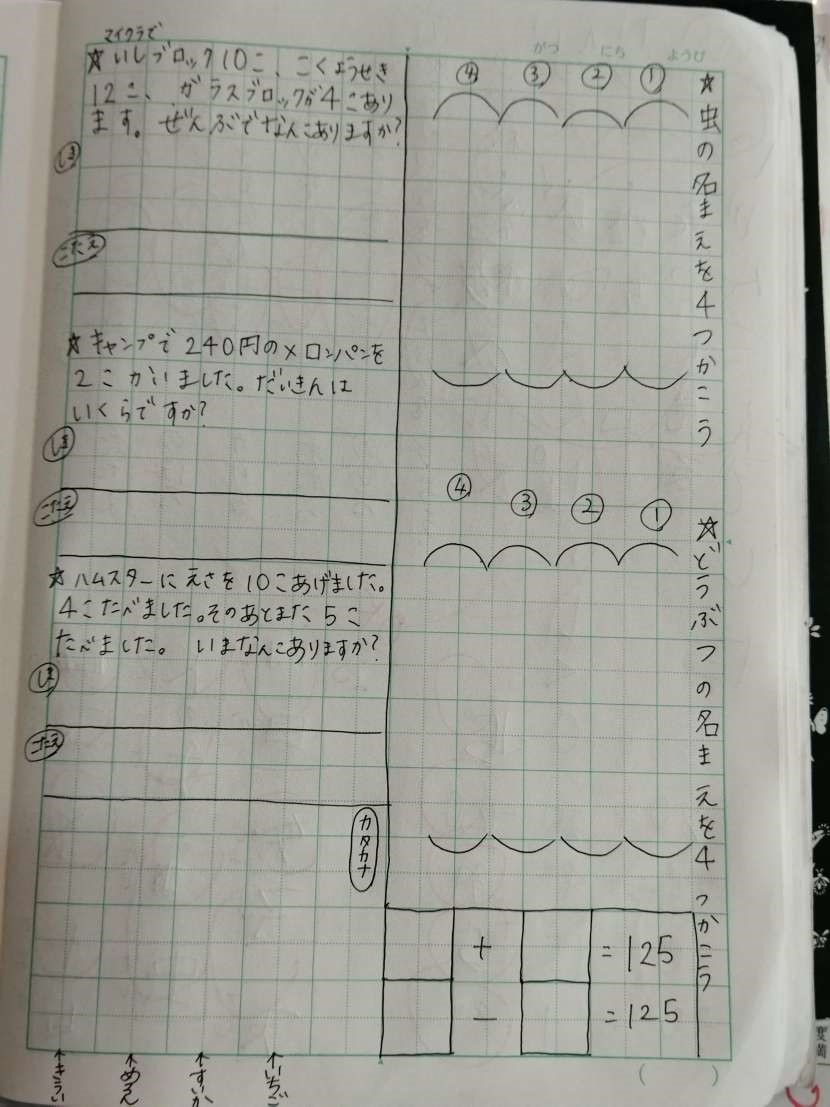 がつ にち ようび
☆虫の名まえを4つかこう
①
②
③
④
☆どうぶつの名まえを4つかこう
①
②
③
④
+ = 125
− = 125
マイクラで
☆いしブロック10こ、こくようせき
12こ、ガラスブロックが4こあり
ます。ぜんぶでなんこありますか?
しき
こたえ
☆キャンプで240円のメロンパンを
2こかいました。だいきんは
いくらですか?
しき
こたえ
☆ハムスターにえさを10こあげました。
4こたべました。そのあとまた5こ
たべました。いまなんこありますか?
しき
こたえ
カタカナ
↑いちご
↑すいか
↑めろん
( )